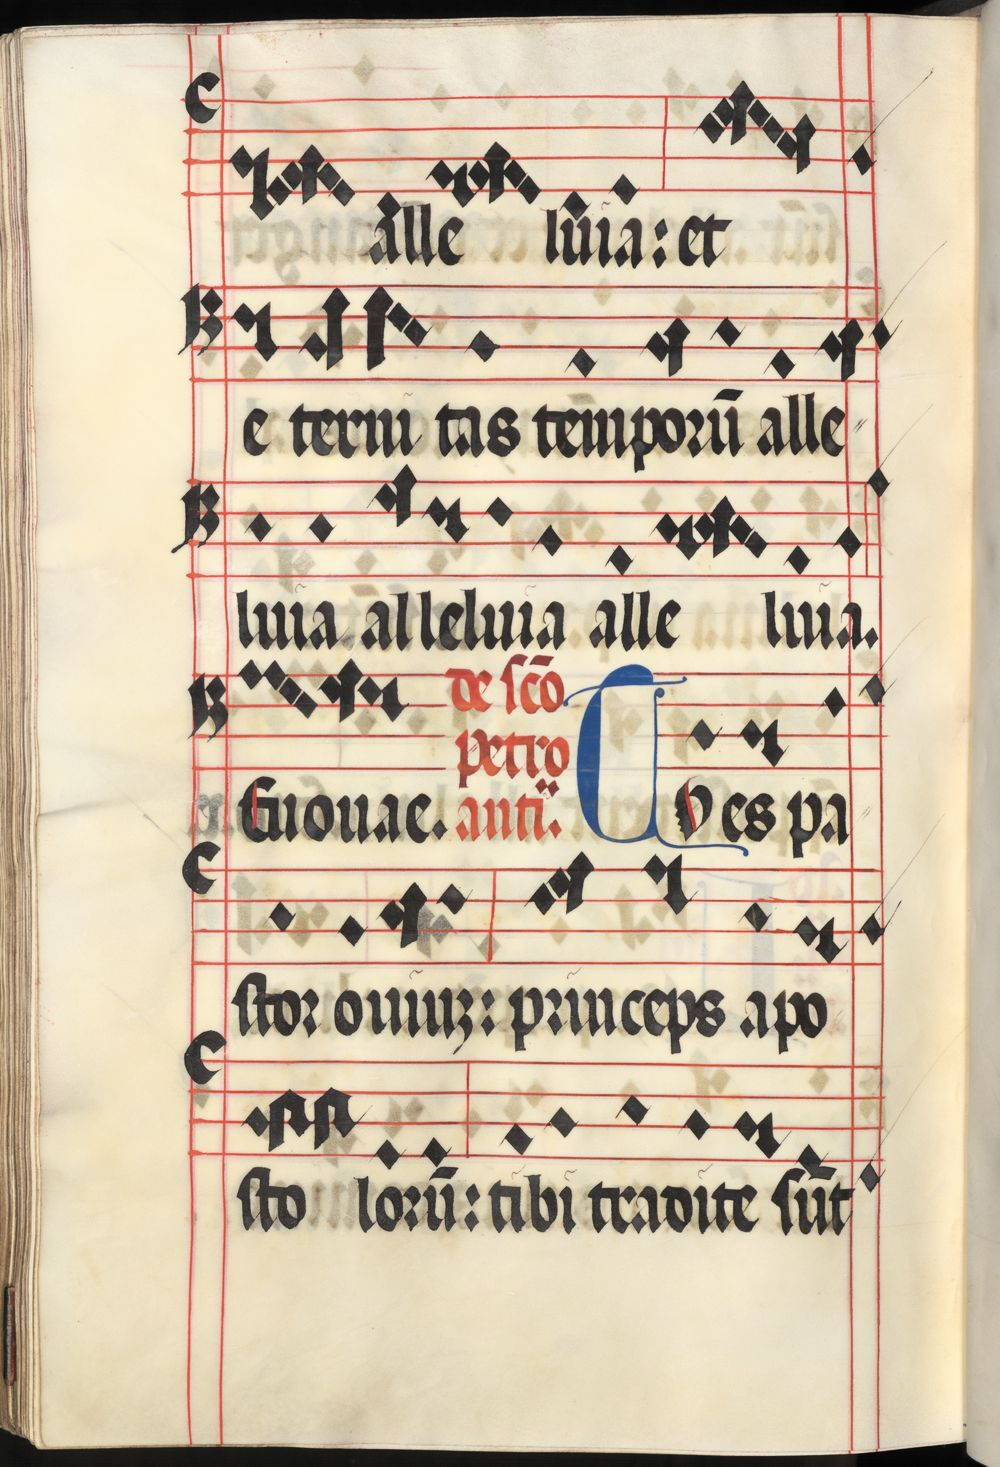 alle luia: et
e terni tas tempoꝛū alle
luia alleluia alle luia.
Euouae. de scō petro anti. Tu es pa
stoꝛ ouiuꝫ: princeps apo
sto loꝛū: tibi tradite sūt